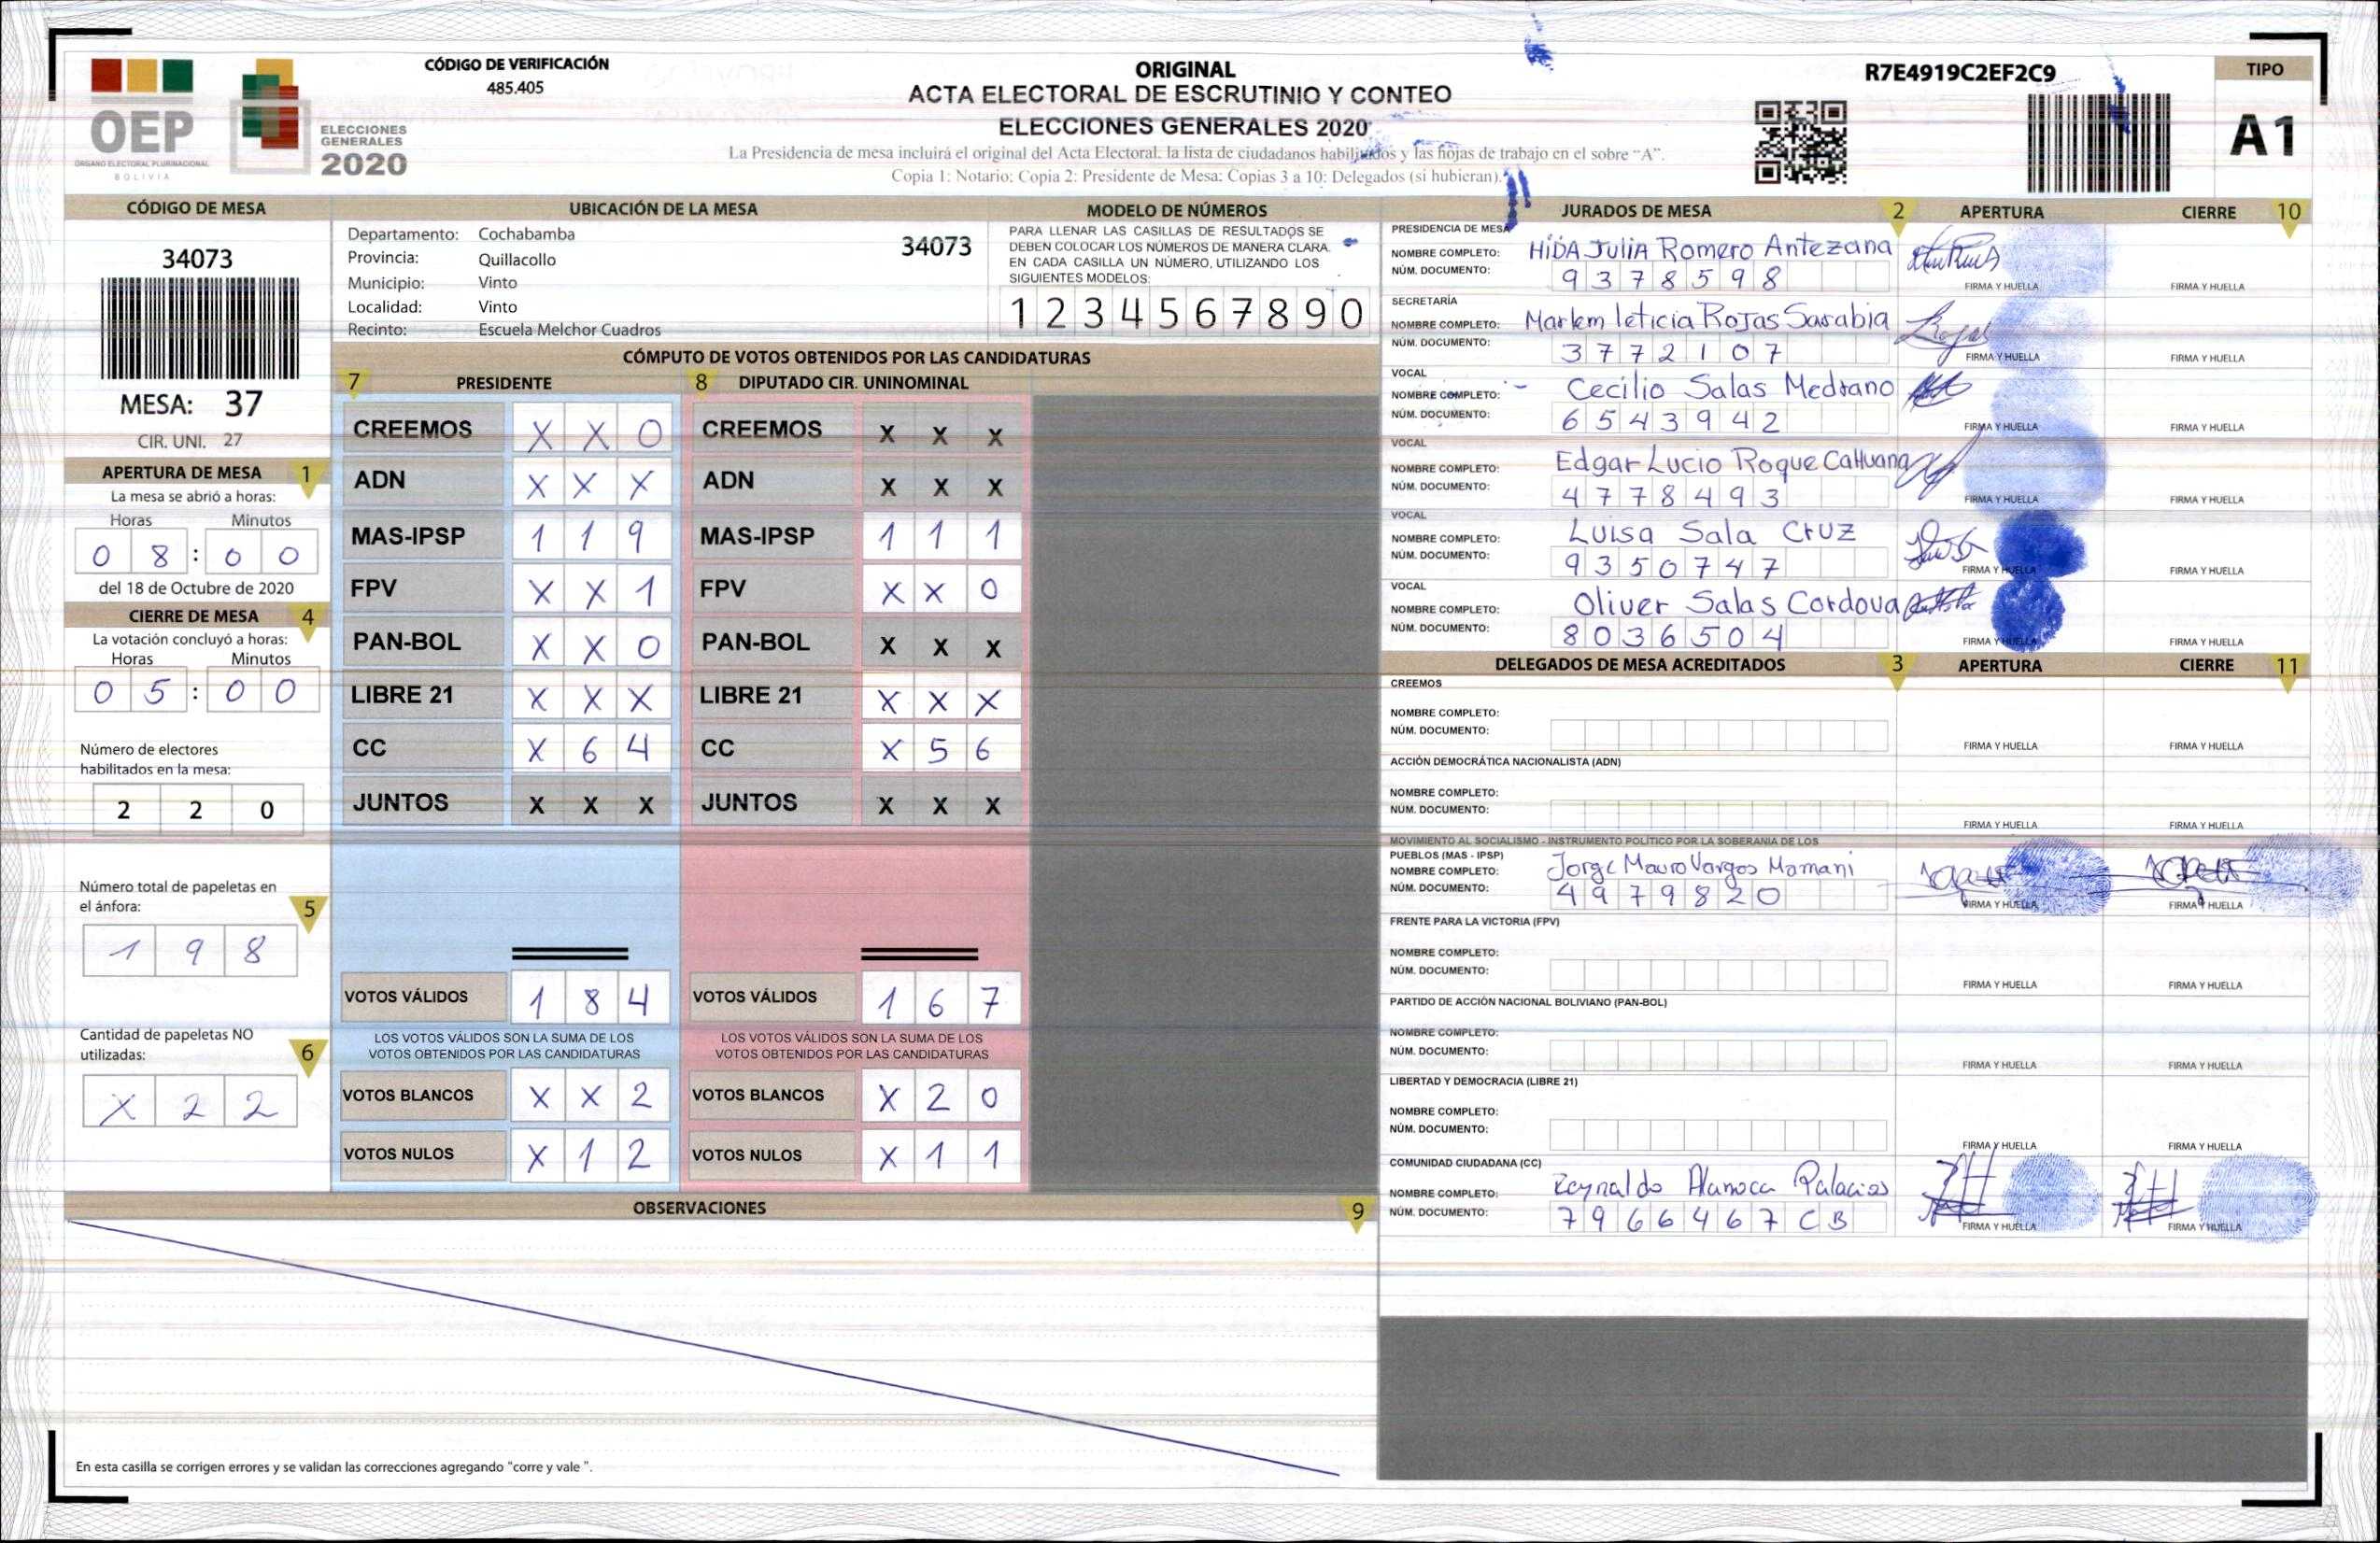 OEP
ÓRGANO ELECTORAL PLURINACIONAL
BOLIVIA
ELECCIONES
GENERALES
2020
CÓDIGO DE VERIFICACIÓN
485.405
ORIGINAL
ACTA ELECTORAL DE ESCRUTINIO Y CONTEO
ELECCIONES GENERALES 2020
La Presidencia de mesa incluirá el original del Acta Electoral, la lista de ciudadanos habilitados y las hojas de trabajo en el sobre "A".
Copia 1: Notario; Copia 2: Presidente de Mesa; Copias 3 a 10: Delegados (si hubieran).
R7E4919C2EF2C9
TIPO
A1
CÓDIGO DE MESA
34073
MESA: 37
CIR. UNI. 27
APERTURA DE MESA 1
La mesa se abrió a horas:
Horas Minutos
0 8 : 0 0
del 18 de Octubre de 2020
CIERRE DE MESA 4
La votación concluyó a horas:
Horas Minutos
0 5 : 0 0
Número de electores
habilitados en la mesa:
2 2 0
Número total de papeletas en
el ánfora: 5
1 9 8
Cantidad de papeletas NO
utilizadas: 6
X 2 2
UBICACIÓN DE LA MESA
Departamento: Cochabamba
34073
Provincia: Quillacollo
Municipio: Vinto
Localidad: Vinto
Recinto: Escuela Melchor Cuadros
MODELO DE NÚMEROS
PARA LLENAR LAS CASILLAS DE RESULTADOS SE
DEBEN COLOCAR LOS NÚMEROS DE MANERA CLARA.
EN CADA CASILLA UN NÚMERO, UTILIZANDO LOS
SIGUIENTES MODELOS:
1 2 3 4 5 6 7 8 9 0
CÓMPUTO DE VOTOS OBTENIDOS POR LAS CANDIDATURAS
7 PRESIDENTE 8 DIPUTADO CIR. UNINOMINAL
CREEMOS X X 0 CREEMOS X X X
ADN X X X ADN X X X
MAS-IPSP 1 1 9 MAS-IPSP 1 1 1
FPV X X 1 FPV X X 0
PAN-BOL X X 0 PAN-BOL X X X
LIBRE 21 X X X LIBRE 21 X X X
CC X 6 4 CC X 5 6
JUNTOS X X X JUNTOS X X X
VOTOS VÁLIDOS 1 8 4 VOTOS VÁLIDOS 1 6 7
LOS VOTOS VÁLIDOS SON LA SUMA DE LOS LOS VOTOS VÁLIDOS SON LA SUMA DE LOS
VOTOS OBTENIDOS POR LAS CANDIDATURAS VOTOS OBTENIDOS POR LAS CANDIDATURAS
VOTOS BLANCOS X X 2 VOTOS BLANCOS X 2 0
VOTOS NULOS X 1 2 VOTOS NULOS X 1 1
OBSERVACIONES 9
En esta casilla se corrigen errores y se validan las correcciones agregando "corre y vale ".
JURADOS DE MESA 2 APERTURA CIERRE 10
PRESIDENCIA DE MESA
NOMBRE COMPLETO: HiDA JuliA Romero Antezana
NÚM. DOCUMENTO: 9 3 7 8 5 9 8
FIRMA Y HUELLA FIRMA Y HUELLA
SECRETARÍA
NOMBRE COMPLETO: Marlem leticia Rojas Sarabia
NÚM. DOCUMENTO: 3 7 7 2 1 0 7
FIRMA Y HUELLA FIRMA Y HUELLA
VOCAL
NOMBRE COMPLETO: Cecilio Salas Medrano
NÚM. DOCUMENTO: 6 5 4 3 9 4 2
FIRMA Y HUELLA FIRMA Y HUELLA
VOCAL
NOMBRE COMPLETO: Edgar Lucio Roque
NÚM. DOCUMENTO: 4 7 7 8 4 9 3
FIRMA Y HUELLA FIRMA Y HUELLA
VOCAL
NOMBRE COMPLETO: Luisa Sala Cruz
NÚM. DOCUMENTO: 9 3 5 0 7 4 7
FIRMA Y HUELLA FIRMA Y HUELLA
VOCAL
NOMBRE COMPLETO: Oliver Salas Cordova
NÚM. DOCUMENTO: 8 0 3 6 5 0 4
FIRMA Y HUELLA FIRMA Y HUELLA
DELEGADOS DE MESA ACREDITADOS 3 APERTURA CIERRE 11
CREEMOS
NOMBRE COMPLETO:
NÚM. DOCUMENTO:
FIRMA Y HUELLA FIRMA Y HUELLA
ACCIÓN DEMOCRÁTICA NACIONALISTA (ADN)
NOMBRE COMPLETO:
NÚM. DOCUMENTO:
FIRMA Y HUELLA FIRMA Y HUELLA
MOVIMIENTO AL SOCIALISMO - INSTRUMENTO POLÍTICO POR LA SOBERANIA DE LOS
PUEBLOS (MAS - IPSP)
NOMBRE COMPLETO: Jorge Mauro Vargos Mamani
NÚM. DOCUMENTO: 4 9 7 9 8 2 0
FIRMA Y HUELLA FIRMA Y HUELLA
FRENTE PARA LA VICTORIA (FPV)
NOMBRE COMPLETO:
NÚM. DOCUMENTO:
FIRMA Y HUELLA FIRMA Y HUELLA
PARTIDO DE ACCIÓN NACIONAL BOLIVIANO (PAN-BOL)
NOMBRE COMPLETO:
NÚM. DOCUMENTO:
FIRMA Y HUELLA FIRMA Y HUELLA
LIBERTAD Y DEMOCRACIA (LIBRE 21)
NOMBRE COMPLETO:
NÚM. DOCUMENTO:
FIRMA Y HUELLA FIRMA Y HUELLA
COMUNIDAD CIUDADANA (CC)
NOMBRE COMPLETO: Reynaldo Alanoca Palacios
NÚM. DOCUMENTO: 7 9 6 6 4 6 7 C B
FIRMA Y HUELLA FIRMA Y HUELLA